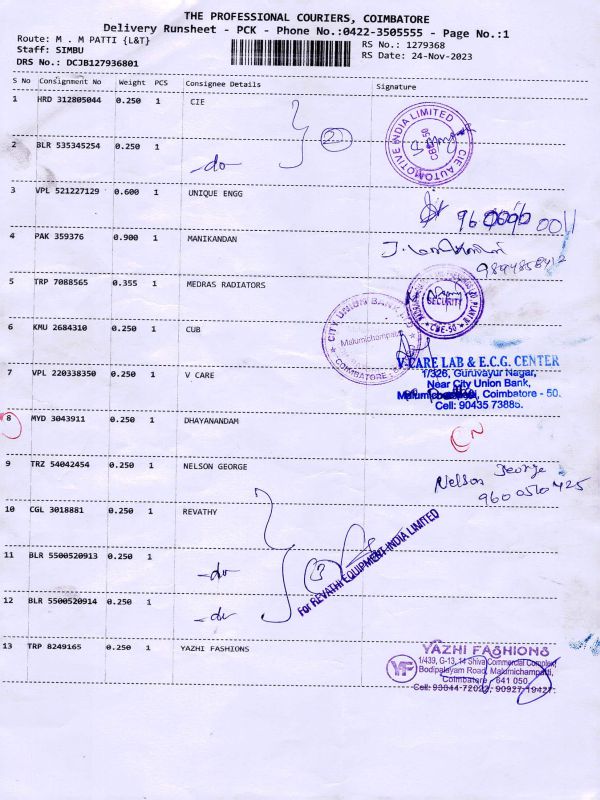 THE PROFESSIONAL COURIERS, COIMBATORE
Delivery Runsheet - PCK - Phone No.:0422-3505555 - Page No.:1
Route: M . M PATTI {L&T}
RS No.: 1279368
Staff: SIMBU
RS Date: 24-Nov-2023
DRS No.: DCJB127936801
S No Consignment No Weight PCS Consignee Details Signature
1 HRD 312805044 0.250 1 CIE
2
CIE AUTOMOTIVE INDIA LIMITED
CBE-50
2 BLR 535345254 0.250 1
-do
3 VPL 521227129 0.600 1 UNIQUE ENGG
4 PAK 359376 0.900 1 MANIKANDAN
9894858412
5 TRP 7088565 0.355 1 MEDRAS RADIATORS
SECURITY
CBE-50
6 KMU 2684310 0.250 1 CUB
CITY UNION BANK LTD
Malumichampatti
COIMBATORE
7 VPL 220338350 0.250 1 V CARE
V-CARE LAB & E.C.G. CENTER
1/326, Guruvayur Nagar,
Near City Union Bank,
Malumichampatti, Coimbatore - 50.
Cell: 90435 73885.
8 MYD 3043911 0.250 1 DHAYANANDAM
CN
9 TRZ 54042454 0.250 1 NELSON GEORGE
Nelson George
9600570425
10 CGL 3018881 0.250 1 REVATHY
11 BLR 5500520913 0.250 1
-do
3
For REVATHI EQUIPMENT INDIA LIMITED
12 BLR 5500520914 0.250 1
-do
13 TRP 8249165 0.250 1 YAZHI FASHIONS
YF
YAZHI FASHIONS
1/439, G-13, 14 Shiva Commercial Complex
Bodipalayam Road, Malumichampatti,
Coimbatore - 641 050
Cell: 93844-72022, 90927-19427.